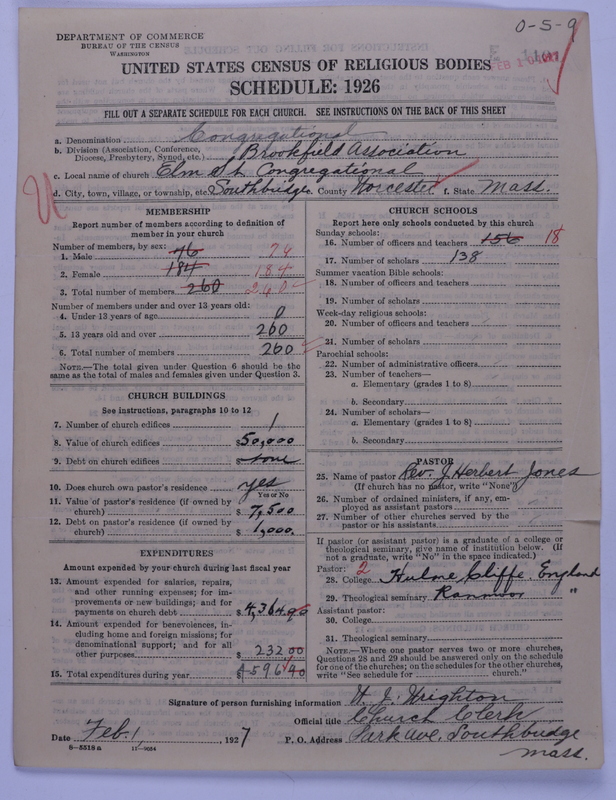 0-5-9
DEPARTMENT OF COMMERCE
BUREAU OF THE CENSUS
WASHINGTON
UNITED STATES CENSUS OF RELIGIOUS BODIES
SCHEDULE: 1926
FILL OUT A SEPARATE SCHEDULE FOR EACH CHURCH. SEE INSTRUCTIONS ON THE BACK OF THIS SHEET
a. Denomination Congregational
b. Division (Association, Conference, Diocese, Presbytery, Synod, etc.) Brookfield Association
c. Local name of church Elm St. Congregational
d. City, town, village, or township, etc. Southbridge e. County Worcester f. State Mass.
MEMBERSHIP
Report number of members according to definition of
member in your church
Number of members, by sex:
1. Male 76
2. Female 184 184
3. Total number of members 260 260
Number of members under and over 13 years old:
4. Under 13 years of age 0
5. 13 years old and over 260
6. Total number of members 260
NOTE.—The total given under Question 6 should be
same as the total of males and females given under Question 3.
CHURCH BUILDINGS
See instructions, paragraphs 10 to 12
7. Number of church edifices 1
8. Value of church edifices $50,000
9. Debt on church edifices $ none
10. Does church own pastor's residence yes
Yes or No
11. Value of pastor's residence (if owned by
church) $ 7,500
12. Debt on pastor's residence (if owned by
church) $ 1,000.
EXPENDITURES
Amount expended by your church during last fiscal year
13. Amount expended for salaries, repairs,
and other running expenses; for im-
provements or new buildings; and for
payments on church debt $ 4,364.90
14. Amount expended for benevolences, in-
cluding home and foreign missions; for
denominational support; and for all
other purposes $ 232 00
15. Total expenditures during year $ 4596 90
CHURCH SCHOOLS
Report here only schools conducted by this church
Sunday schools:
16. Number of officers and teachers 156 18
17. Number of scholars 138
Summer vacation Bible schools:
18. Number of officers and teachers
19. Number of scholars
Week-day religious schools:
20. Number of officers and teachers
21. Number of scholars
Parochial schools:
22. Number of administrative officers
23. Number of teachers—
a. Elementary (grades 1 to 8)
b. Secondary
24. Number of scholars—
a. Elementary (grades 1 to 8)
b. Secondary
PASTOR
25. Name of pastor Rev. J. Herbert Jones
(If church has no pastor, write "None")
26. Number of ordained ministers, if any, em-
ployed as assistant pastors
27. Number of other churches served by the
pastor or his assistants
If pastor (or assistant pastor) is a graduate of a college or
theological seminary, give name of institution below. (If
not a graduate, write "No" in the space indicated.)
Pastor: 2
28. College Hulme Cliffe, England
29. Theological seminary Ranmoor "
Assistant pastor:
30. College
31. Theological seminary
NOTE.—Where one pastor serves two or more churches,
Questions 28 and 29 should be answered only on the schedule
for one of the churches; on the schedules for the other churches,
write "See schedule for church."
Signature of person furnishing information Wrighton
Official title Church Clerk
Date Feb. 1, 1927 P. O. Address Park Ave. Southbridge
Mass.
8-5518a 11-9684